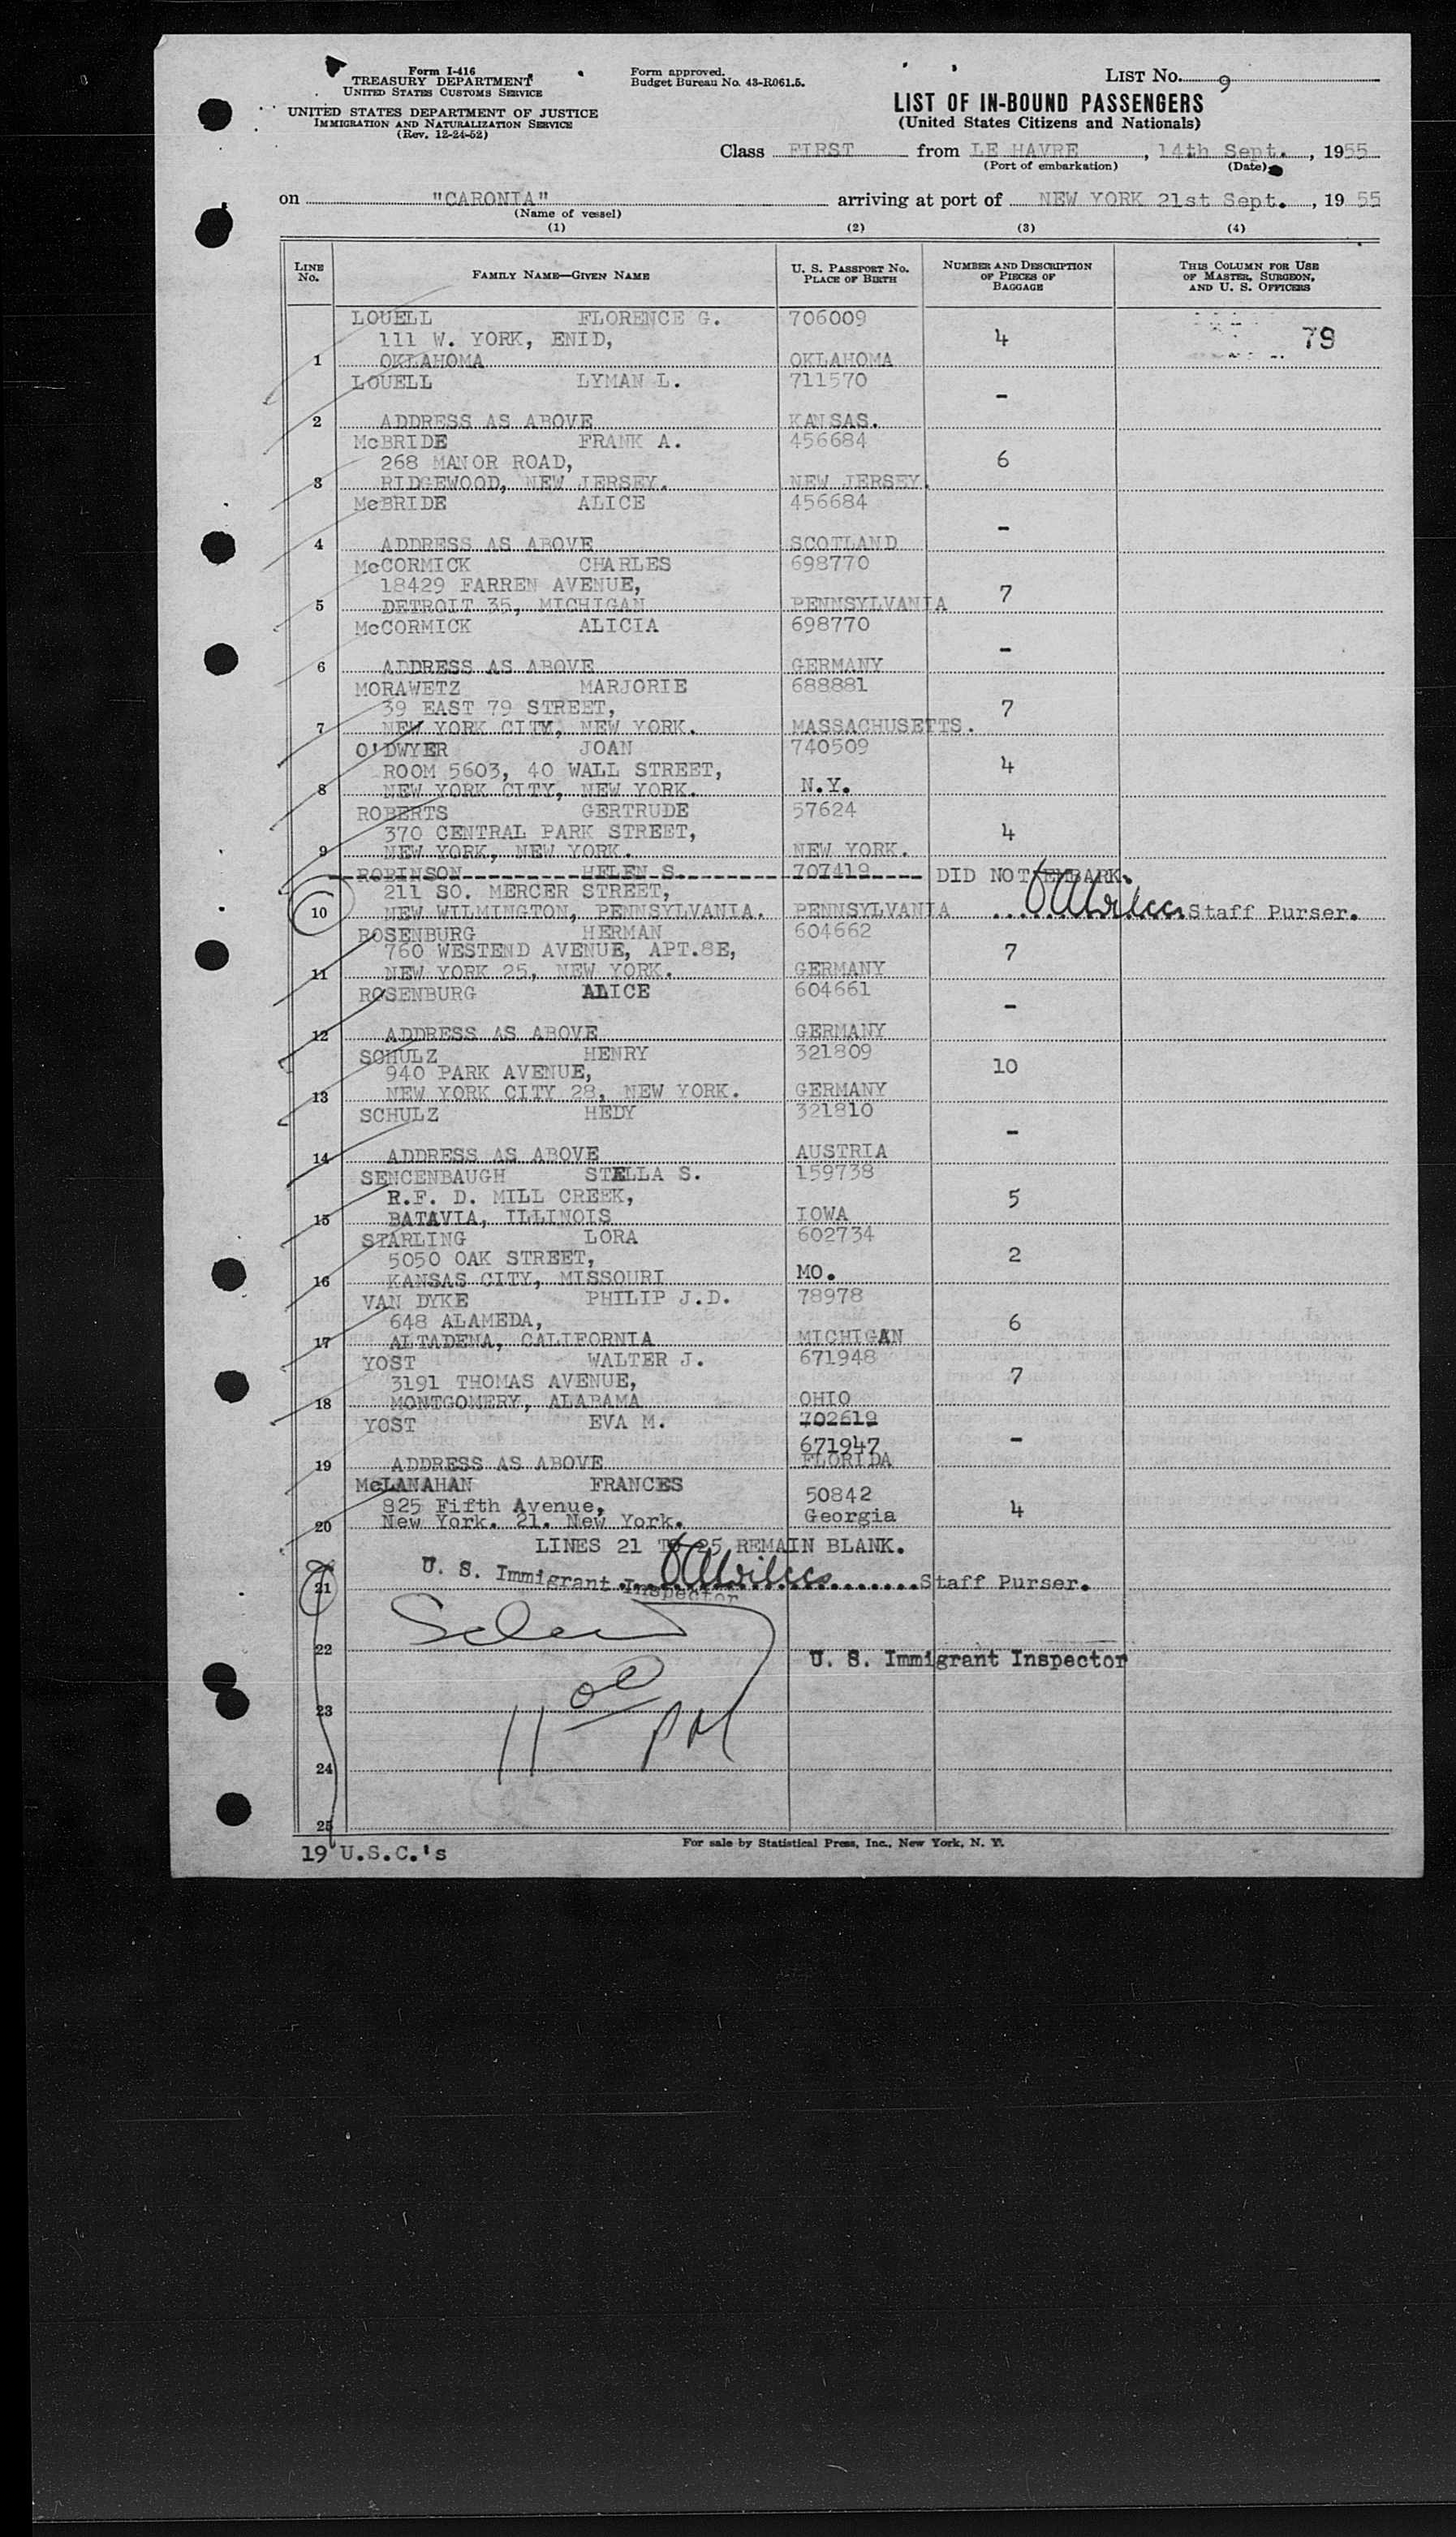 Form I-416
TREASURY DEPARTMENT
UNITED STATES CUSTOMS SERVICE
UNITED STATES DEPARTMENT OF JUSTICE
IMMIGRATION AND NATURALIZATION SERVICE
(Rev. 12-24-52)
Form approved.
Budget Bureau No. 43-R061.5.
LIST NO. 9
LIST OF IN-BOUND PASSENGERS
(United States Citizens and Nationals)
Class FIRST from LE HAVRE, 14th Sept., 1955
(Port of embarkation) (Date)
on "CARONIA" arriving at port of NEW YORK 21st Sept., 1955
(Name of vessel)
(1) (2) (3) (4)
LINE NO. FAMILY NAME—GIVEN NAME U. S. PASSPORT NO. PLACE OF BIRTH NUMBER AND DESCRIPTION OF PIECES OF BAGGAGE THIS COLUMN FOR USE OF MASTER, SURGEON, AND U. S. OFFICERS
LOUELL FLORENCE G. 706009
111 W. YORK, ENID, 4 79
1 OKLAHOMA OKLAHOMA
LOUELL LYMAN L. 711570
-
2 ADDRESS AS ABOVE KANSAS.
McBRIDE FRANK A. 456684
268 MANOR ROAD, 6
3 RIDGEWOOD, NEW JERSEY. NEW JERSEY.
McBRIDE ALICE 456684
-
4 ADDRESS AS ABOVE SCOTLAND
McCORMICK CHARLES 698770
18429 FARREN AVENUE, 7
5 DETROIT 35, MICHIGAN PENNSYLVANIA
McCORMICK ALICIA 698770
-
6 ADDRESS AS ABOVE GERMANY
MORAWETZ MARJORIE 688881
39 EAST 79 STREET, 7
7 NEW YORK CITY, NEW YORK. MASSACHUSETTS.
O'DWYER JOAN 740509
ROOM 5603, 40 WALL STREET, 4
8 NEW YORK CITY, NEW YORK. N.Y.
ROBERTS GERTRUDE 57624
370 CENTRAL PARK STREET, 4
9 NEW YORK, NEW YORK. NEW YORK.
ROBINSON HELEN S. 707419 DID NOT EMBARK.
211 SO. MERCER STREET,
10 NEW WILMINGTON, PENNSYLVANIA. PENNSYLVANIA Staff Purser.
ROSENBURG HERMAN 604662
760 WESTEND AVENUE, APT.8E, 7
11 NEW YORK 25, NEW YORK. GERMANY
ROSENBURG ALICE 604661
-
12 ADDRESS AS ABOVE GERMANY
SCHULZ HENRY 321809
940 PARK AVENUE, 10
13 NEW YORK CITY 28, NEW YORK. GERMANY
SCHULZ HEDY 321810
-
14 ADDRESS AS ABOVE AUSTRIA
SENCENBAUGH STELLA S. 159738
R.F. D. MILL CREEK, 5
15 BATAVIA, ILLINOIS IOWA
STARLING LORA 602734
5050 OAK STREET, 2
16 KANSAS CITY, MISSOURI MO.
VAN DYKE PHILIP J.D. 78978
648 ALAMEDA, 6
17 ALTADENA, CALIFORNIA MICHIGAN
YOST WALTER J. 671948
3191 THOMAS AVENUE, 7
18 MONTGOMERY, ALABAMA OHIO
YOST EVA M. 702619
671947 -
19 ADDRESS AS ABOVE FLORIDA
McLANAHAN FRANCES 50842
825 Fifth Avenue, Georgia 4
20 New York. 21. New York.
LINES 21 TO 25 REMAIN BLANK.
U. S. Immigrant Inspector
21 Staff Purser.
22 U. S. Immigrant Inspector
11 00 PM
23
24
25
19 U.S.C.'s
For sale by Statistical Press, Inc., New York, N. Y.